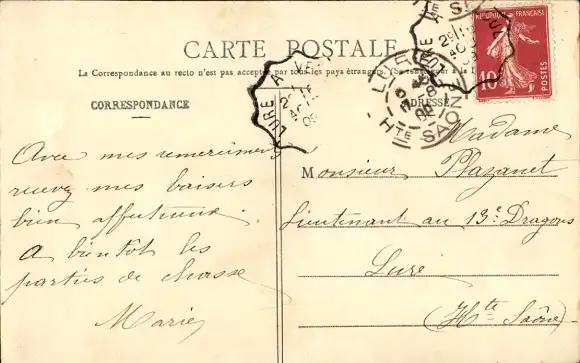 CARTE POSTALE
La Correspondance au recto n'est pas acceptée par tous les pays étrangers. (Se renseigner à la
CORRESPONDANCE
ADRESSE
Avec mes remerciements
recevez mes baisers
bien affectueux.
A bientôt les
parties de chasse
Marie
Madame
Monsieur Plazanet
lieutenant au 13e Dragons
Lure
(Hte Saône)
REPUBLIQUE FRANÇAISE
10
POSTES
LURE
Hte SAONE
LURE A